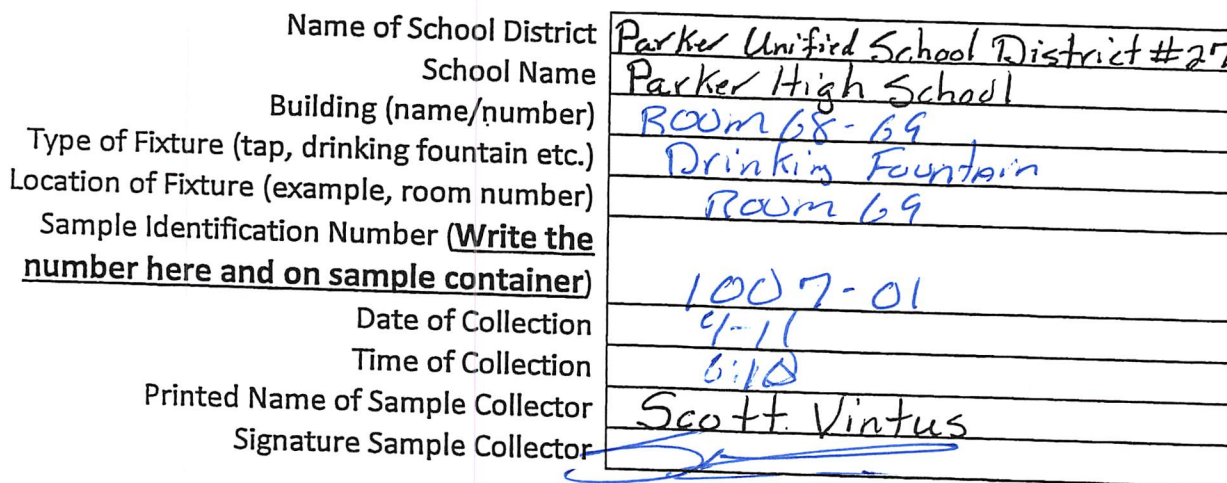 Name of School District Parker Unified School District #27
School Name Parker High School
Building (name/number) Room 68-69
Type of Fixture (tap, drinking fountain etc.) Drinking Fountain
Location of Fixture (example, room number) Room 69
Sample Identification Number (Write the
number here and on sample container) 1007-01
Date of Collection 4-11
Time of Collection
Printed Name of Sample Collector Scott Vintus
Signature Sample Collector